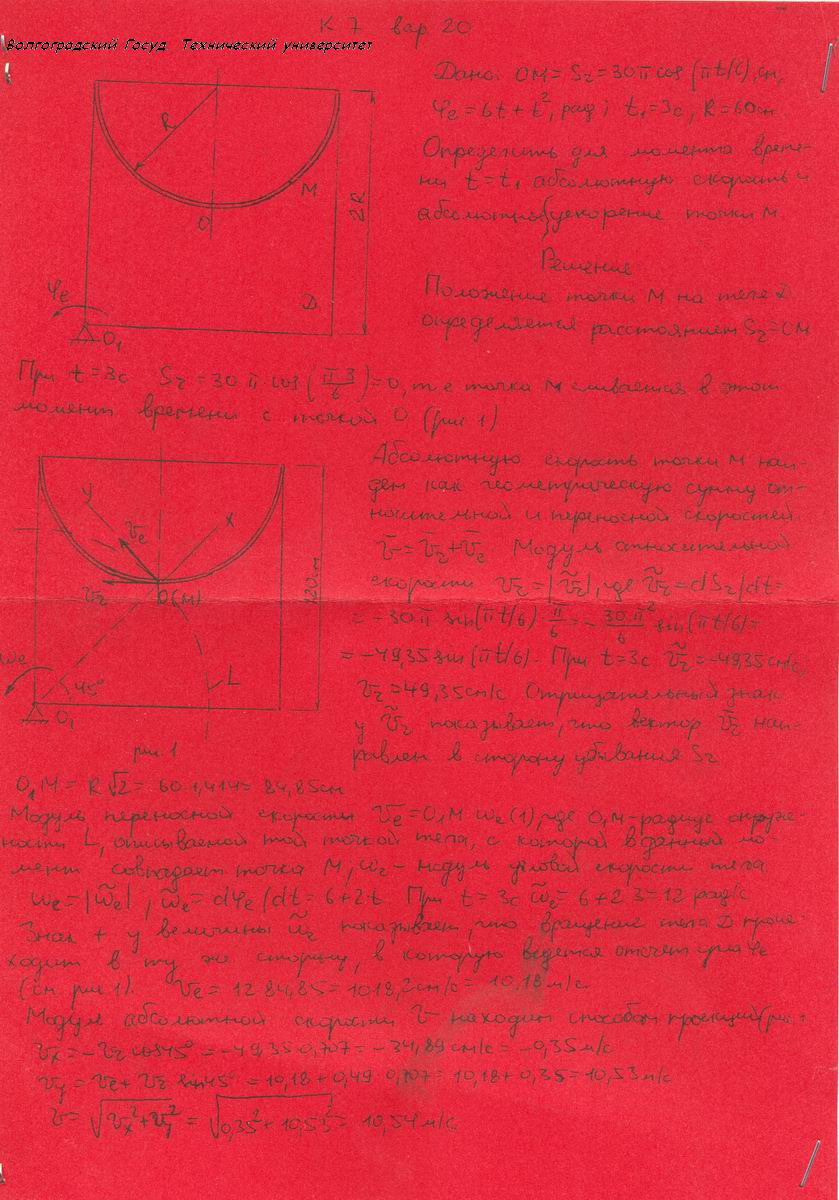 К 7 вар 20
Волгоградский Госуд. Технический университет
Дано: OM = Sr = 30π cos (πt/6), см,
φe = 6t + t², рад; t₁ = 3с, R = 60см.
Определить для момента време-
ни t = t₁ абсолютную скорость и
абсолютное ускорение точки M.
Решение
Положение точки M на теле D
определяется расстоянием Sr = OM
R
M
O
2R
D
φe
O₁
При t = 3с Sr = 30π cos (π3/6) = 0, т е точка M сливается в этот
момент времени с точкой O (рис 1)
Абсолютную скорость точки M най-
дем как геометрическую сумму от-
носительной и переносной скоростей
v̄ = v̄r + v̄e. Модуль относительной
скорости vr = |ṽr|, где ṽr = dSr/dt =
= -30π sin(πt/6) π/6 = -30π²/6 sin(πt/6) =
= -49,35 sin(πt/6). При t = 3с ṽr = -49,35 см/с,
vr = 49,35 см/с Отрицательный знак
у ṽr показывает, что вектор v̄r нап-
равлен в сторону убывания Sr
y
v̄e
x
v̄r
O(M)
120см
ωe
45°
L
O₁
рис. 1
O₁M = R√2 = 60 1,414 = 84,85 см
Модуль переносной скорости v̄e = O₁M ωe (1), где O₁M - радиус окруж-
ности L, описываемой той точкой тела, с которой в данный мо-
мент совпадает точка M, ωe - модуль угловой скорости тела
ωe = |ω̃e|, ω̃e = dφe/dt = 6 + 2t При t = 3с ω̃e = 6 + 2 3 = 12 рад/с
Знак + у величины ω̃e показывает, что вращение тела D проис-
ходит в ту же сторону, в которую ведется отсчет угла φe
(см. рис 1). ve = 12 84,85 = 1018,2 см/с = 10,18 м/с.
Модуль абсолютной скорости v̄ находим способом проекций (рис 1
vx = -vr cos45° = -49,35 0,707 = -34,89 см/с = -0,35 м/с
vy = ve + vr sin45° = 10,18 + 0,49 0,707 = 10,18 + 0,35 = 10,53 м/с
v = √(vx² + vy²) = √(0,35² + 10,53²) = 10,54 м/с